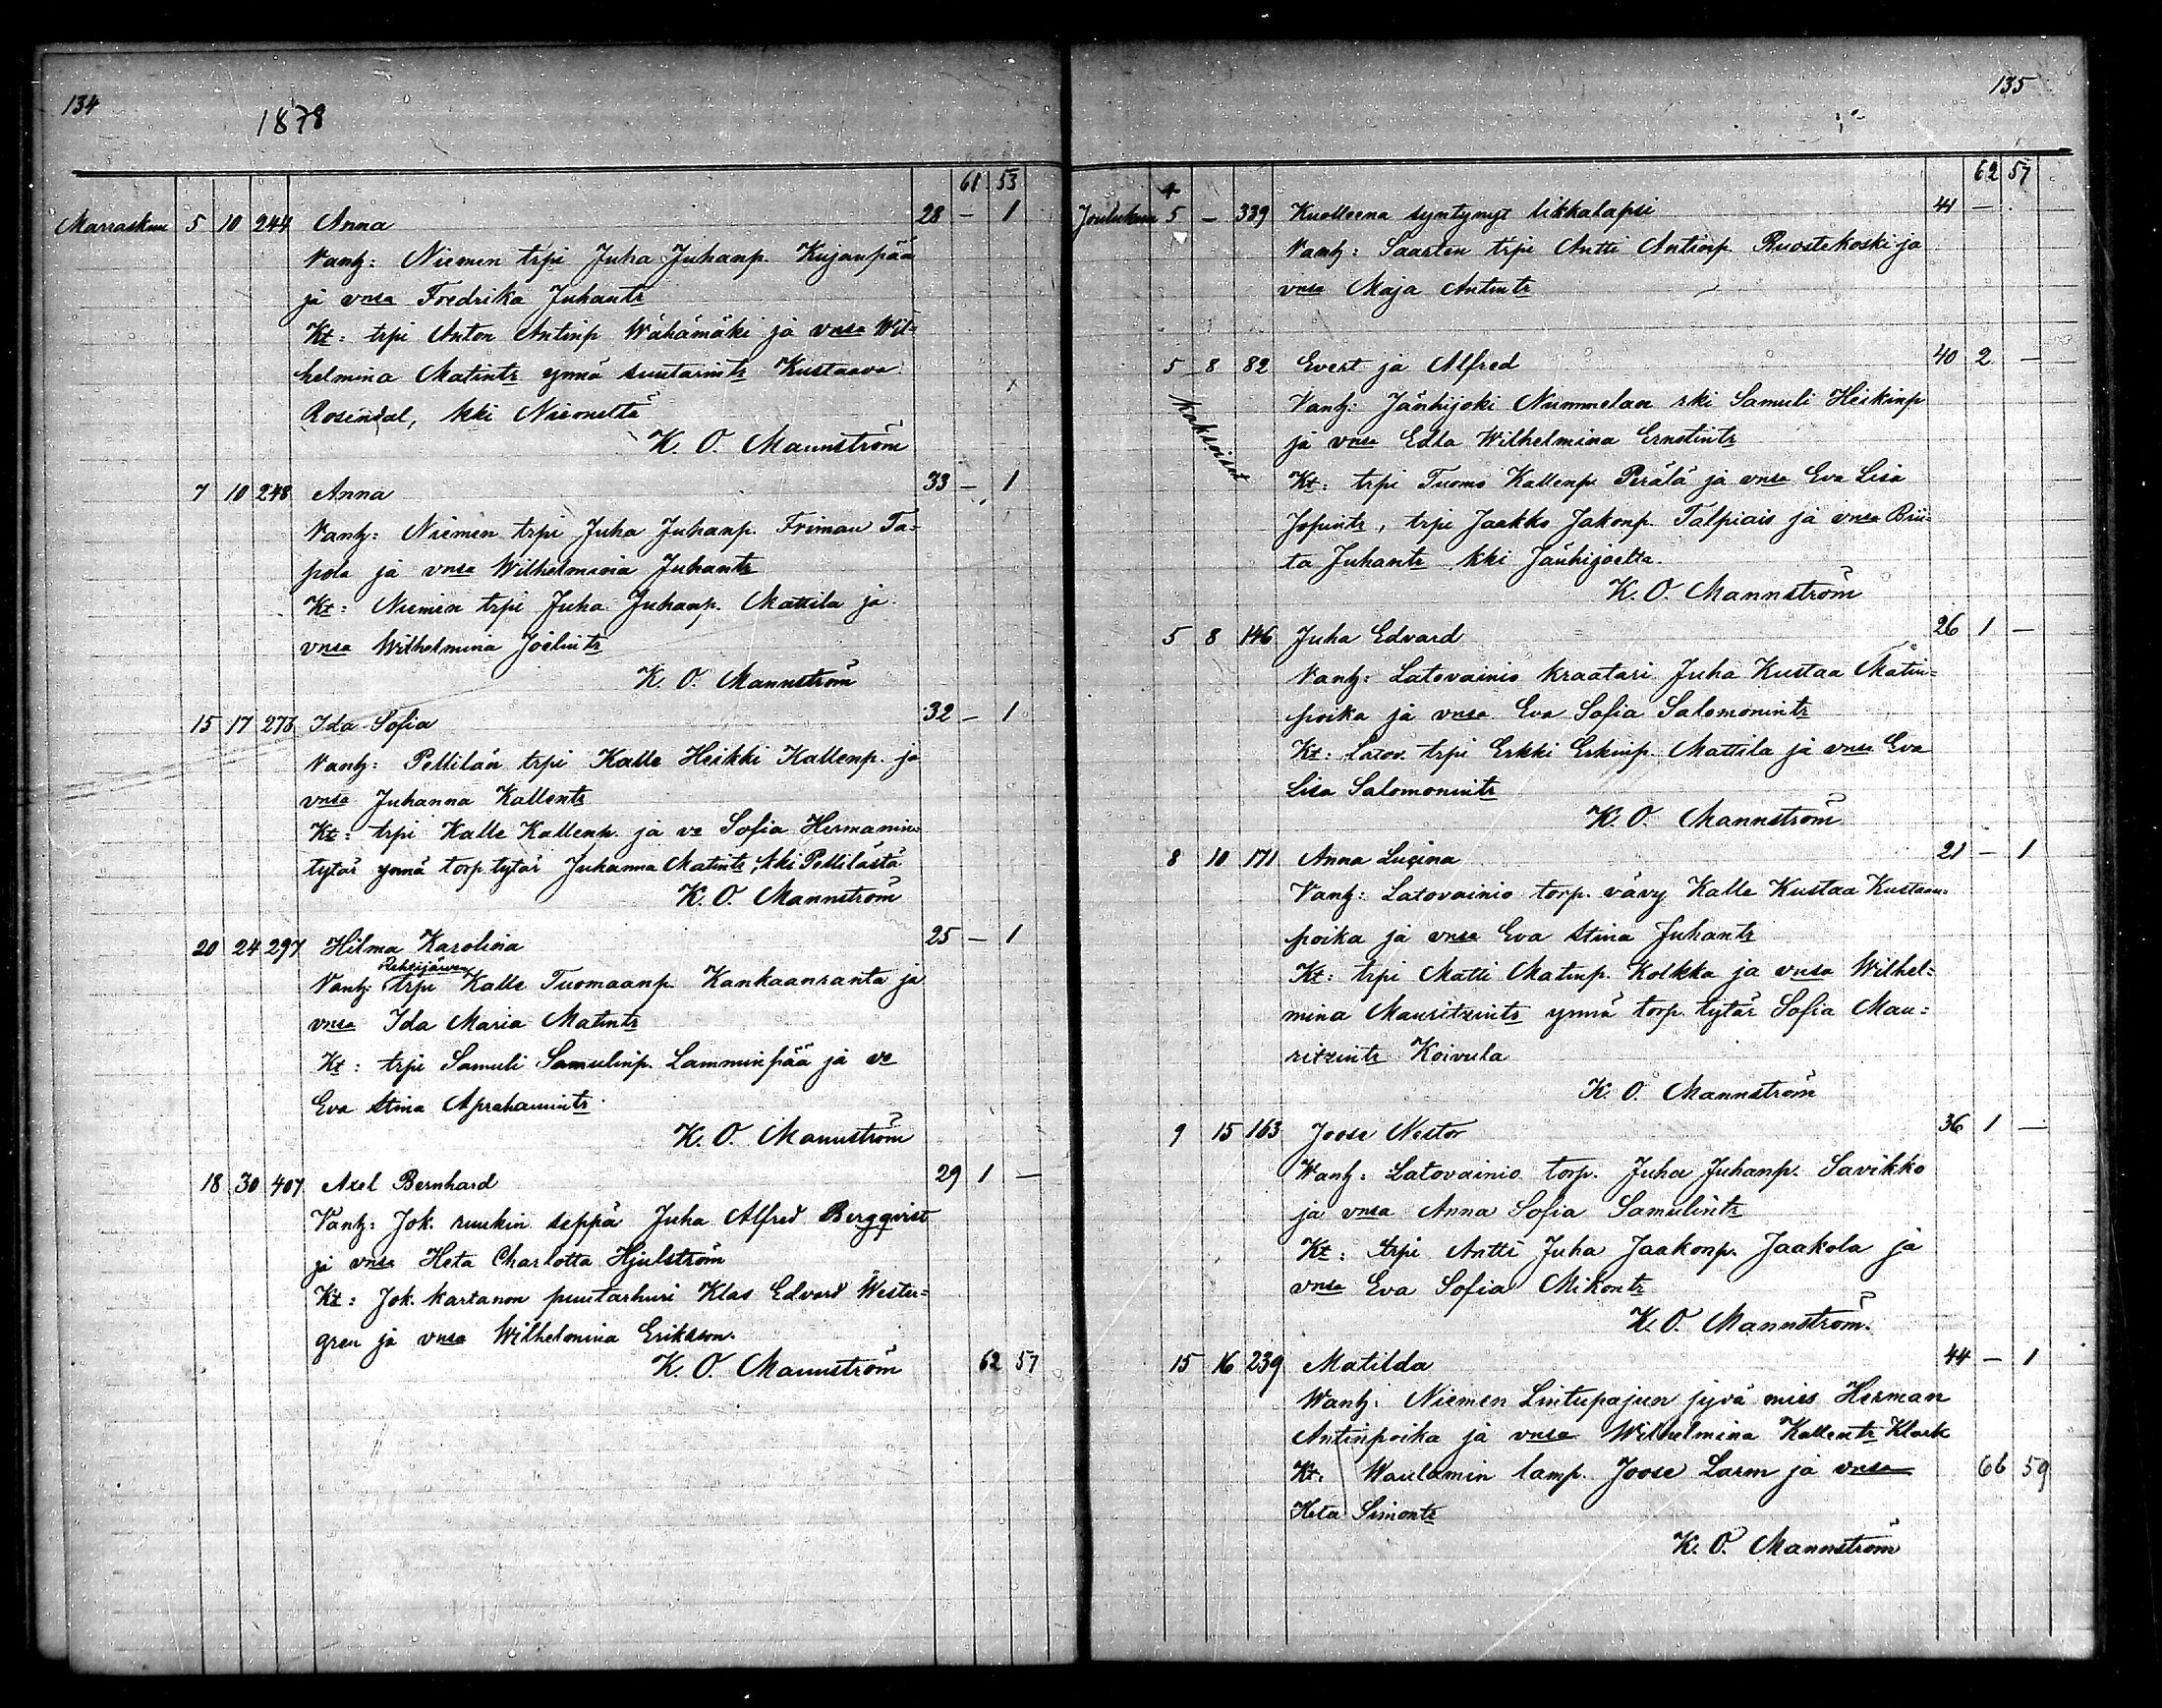 134
1878
61 53
Marraskuu 5 10 244 Anna 28 — 1
Vanh: Niemen trpi Juha Juhanp. Kujanpää
ja vnsa Fredrika Juhantr
Kt: trpi Anton Antinp Wähämäki ja vnsa Wil=
helmina Matintr ynnä suutarintr Kustaava
Rosendal, kki Niemeltä
K. O. Mannström
7 10 248 Anna 33 — 1
Vanh: Niemen trpi Juha Juhanp. Friman Ta=
pola ja vnsa Wilhelmina Juhantr
Kt: Niemen trpi Juha Juhanp. Mattila ja
vnsa Wilhelmina Joelintr
K. O. Mannström
15 17 276 Ida Sofia 32 — 1
Vanh: Pellilän trpi Kalle Heikki Kallenp. ja
vnsa Juhanna Kallentr
Kt: trpi Kalle Kallenp. ja va Sofia Hermanin
tytär ynnä torp. tytär Juhanna Matintr, kki Pellilästä
K. O. Mannström
20 24 297 Hilma Karolina 25 — 1
Rehtijärven
Vanh: trpi Kalle Tuomaanp. Kankaanranta ja
vnsa Ida Maria Matintr
Kt: trpi Samuli Samulinp. Lamminpää ja va
Eva Stina Aprahamintr
K. O. Mannström
18 30 407 Axel Bernhard 29 1 —
Vanh: Jok. ruukin seppä Juha Alfred Bergqvist
ja vnsa Heta Charlotta Hjulström
Kt: Jok. kartanon puutarhuri Klas Edvard Wester=
gren ja vnsa Wilhelmina Eriksson.
K. O. Mannström 62 57
135
62 57
4
Joulukuu 5 — 339 Kuolleena syntynyt likkalapsi 41 —
Vanh: Saarten trpi Antti Antinp Ruostekoski ja
vnsa Maja Antintr
5 8 82 Evert ja Alfred 40 2 —
kaksoiset
Vanh: Jänhijoki Nummelan rki Samuli Heikinp
ja vnsa Edla Wilhelmina Ernstintr
Kt: trpi Tuomo Kallenp. Perälä ja vnsa Eva Lisa
Jopintr, trpi Jaakko Jakonp. Talpiais ja vnsa Brii=
ta Juhantr kki Jänhijoelta.
K. O. Mannström
5 8 146 Juha Edvard 26 1 —
Vanh: Latovainio kraatari Juha Kustaa Matin=
poika ja vnsa Eva Sofia Salomonintr
Kt: Latov. trpi Erkki Erkinp. Mattila ja vnsa Eva
Lisa Salomonintr
K. O. Mannström
8 10 171 Anna Lusina 21 — 1
Vanh: Latovainio torp. vävy Kalle Kustaa Kustaan=
poika ja vnsa Eva Stina Juhantr
Kt: trpi Matti Matinp. Kolkka ja vnsa Wilhel=
mina Mauritzintr ynnä torp. tytär Sofia Mau=
ritzintr Koivula
K. O. Mannström
9 15 163 Joose Nestor 36 1 —
Wanh: Latovainio torp. Juha Juhanp. Savikko
ja vnsa Anna Sofia Samulintr
Kt: trpi Antti Juha Jaakonp. Jaakola ja
vnsa Eva Sofia Mikontr
K. O. Mannström.
15 16 239 Matilda 44 — 1
Wanh: Niemen Lintupajun jyvä mies Herman
Antinpoika ja vnsa Wilhelmina Kallentr Klark
Kt: Waulamin lamp. Joose Larm ja vnsa 66 59
Heta Simontr
K. O. Mannström